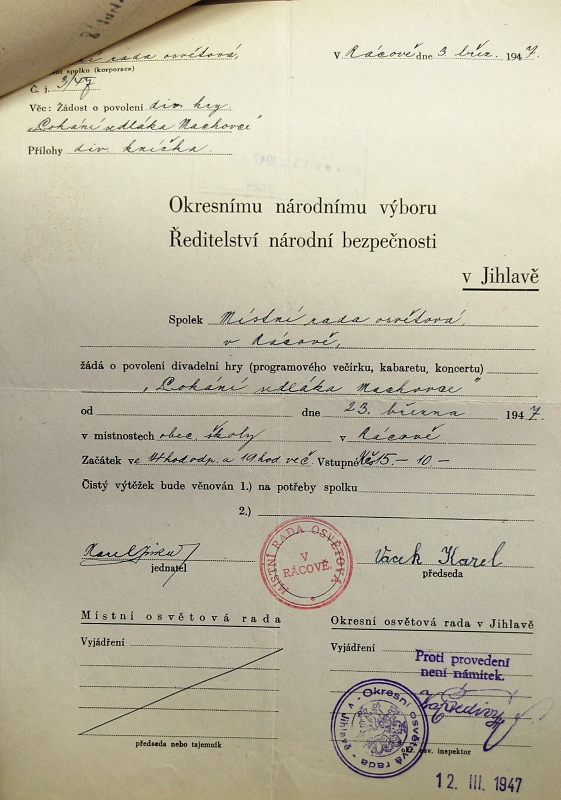 rada osvětová,
spolku (korporace)
V Rácově dne 3 břez. 1947.
Č. j. 3/47
Věc: Žádost o povolení div. hry
„Lokání sedláka Machovce"
Přílohy div. knížka.
Okresnímu národnímu výboru
Ředitelství národní bezpečnosti
v Jihlavě
Spolek Místní rada osvětová,
v Rácově,
žádá o povolení divadelní hry (programového večírku, kabaretu, koncertu)
„Lokání sedláka Machovce"
od dne 23. března 1947.
v místnostech obec. školy v Rácově
Začátek ve 14 hod odp. a 19 hod. več. Vstupné Kčs 15.– 10–
Čistý výtěžek bude věnován 1.) na potřeby spolku
2.)
Karel
jednatel
MÍSTNÍ RADA OSVĚTOVÁ
V
RÁCOVĚ.
Vacek Karel
předseda
Místní osvětová rada
Vyjádření
předseda nebo tajemník
Okresní osvětová rada v Jihlavě
Vyjádření
Proti provedení
není námitek.
Okresní osvětová rada v Jihlavě
osv. inspektor
12. III. 1947